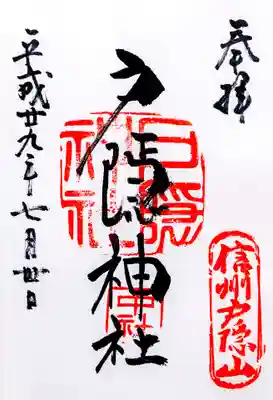 奉拝
信州戸隠山
戸隠神社
戸隠神社
中社
平成廿九年七月丗日